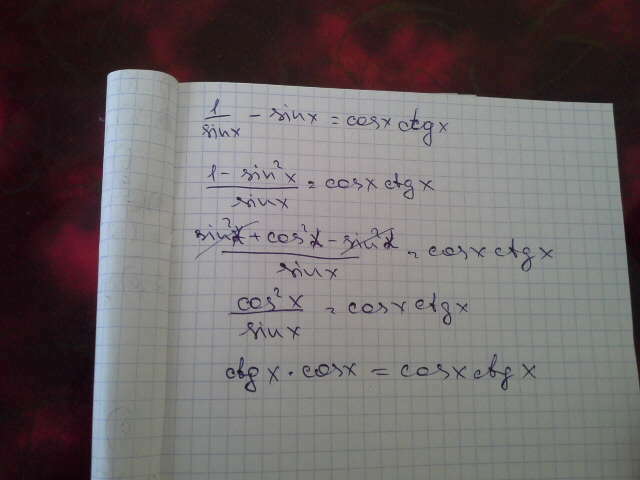 1/sinx - sinx = cosx ctgx
(1 - sin²x)/sinx = cosx ctgx
(sin²x + cos²x - sin²x)/sinx = cosx ctgx
cos²x/sinx = cosx ctgx
ctgx · cosx = cosx ctgx